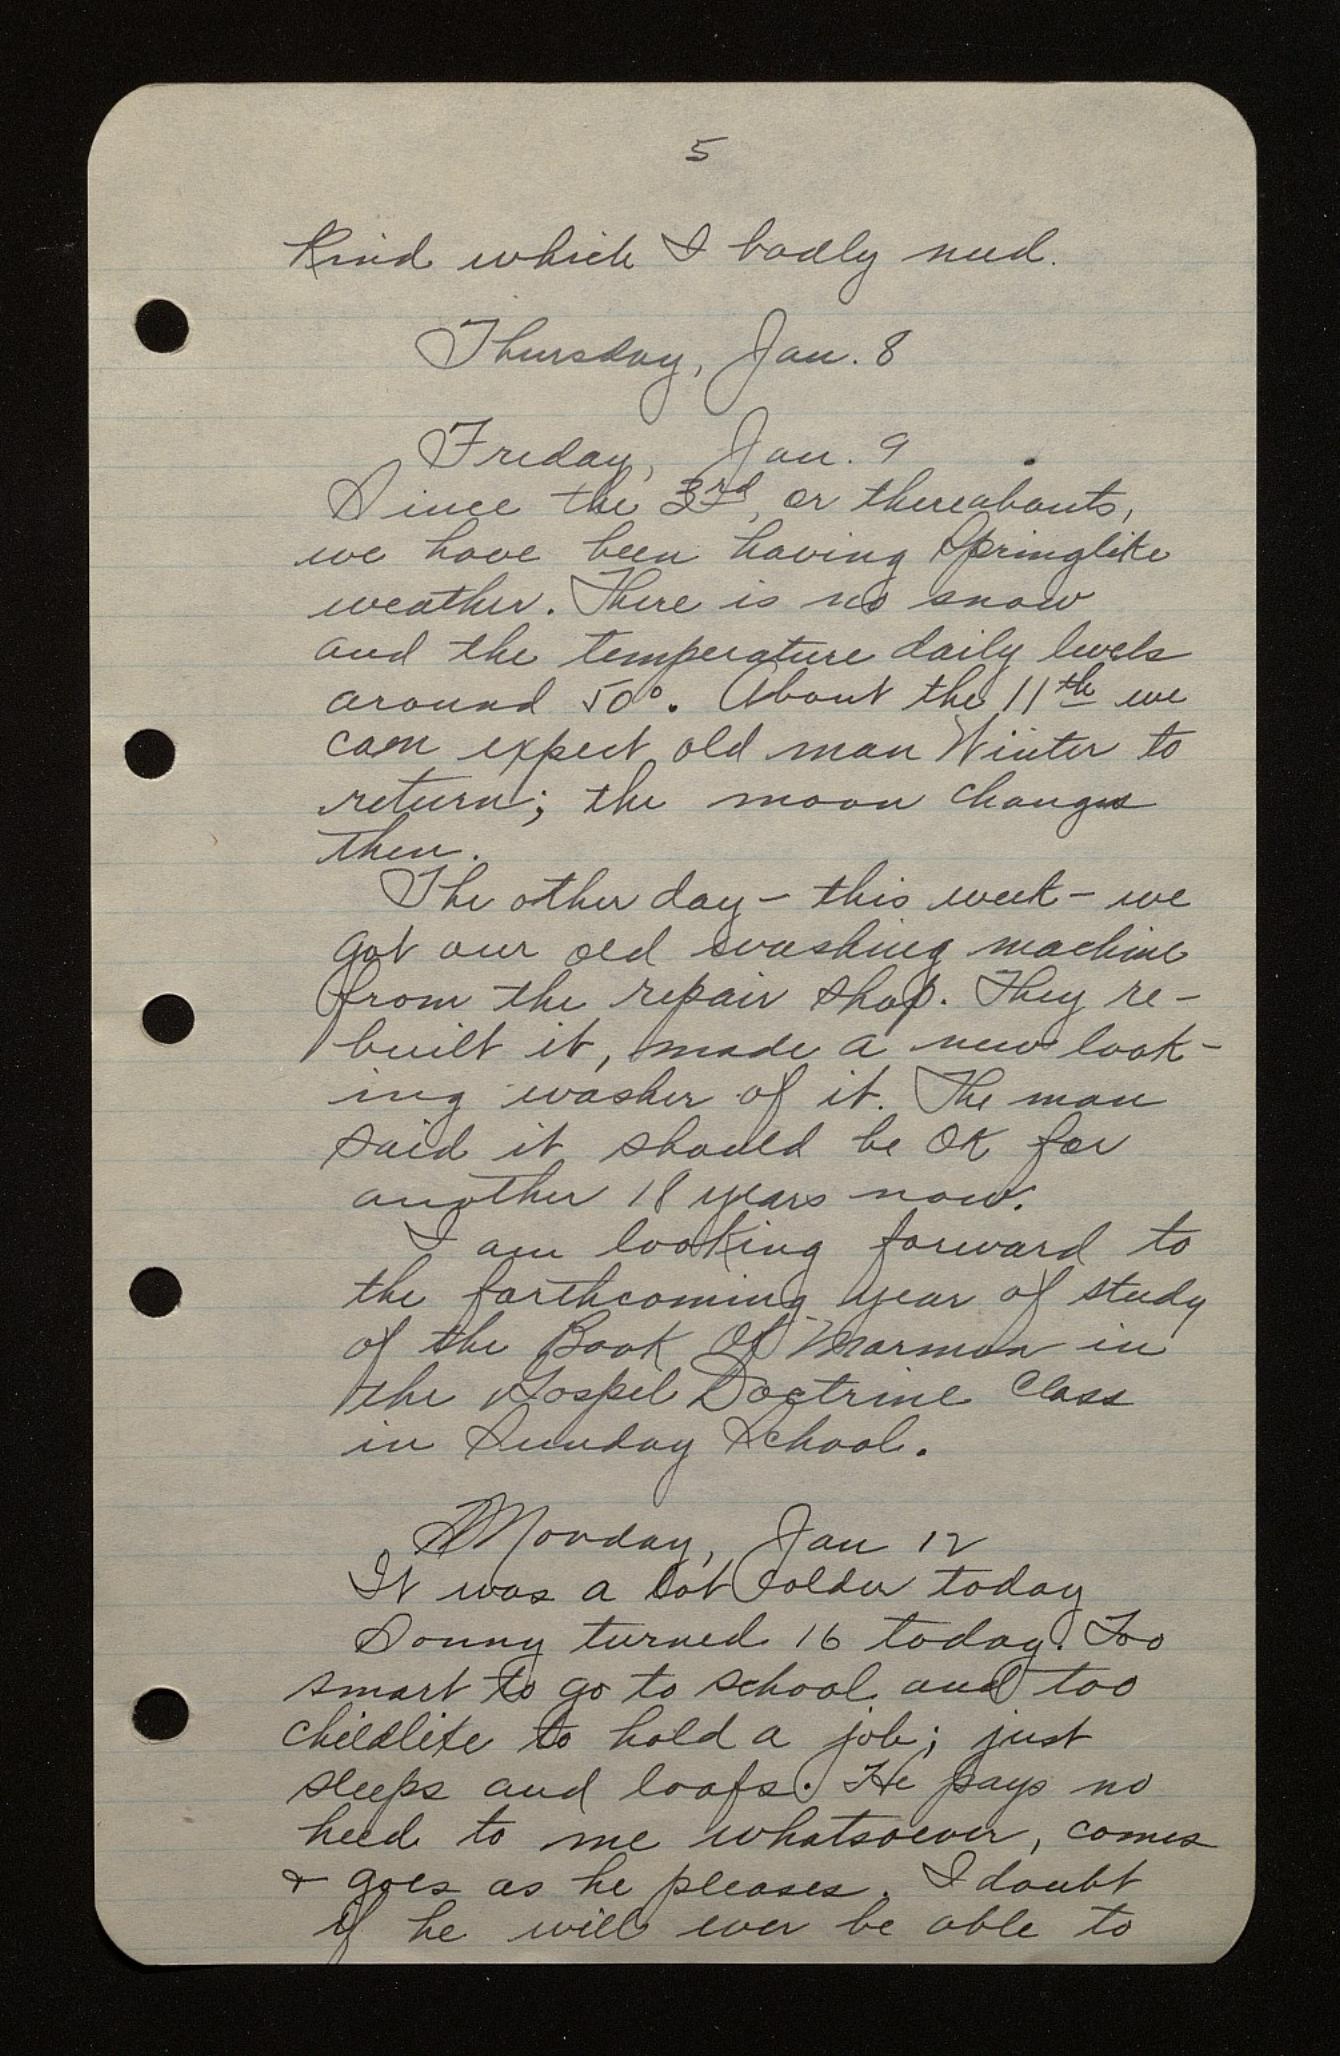 5
Kind which I badly need.
Thursday, Jan. 8
Friday, Jan. 9
Since the 3rd, or thereabouts,
we have been having Springlike
weather. There is no snow
and the temperature daily levels
around 50°. About the 11th we
can expect old man Winter to
return; the moon changes
then.
The other day - this week - we
got our old washing machine
from the repair shop. They re-
built it, made a new look-
ing washer of it. The man
said it should be OK for
another 18 years now.
I am looking forward to
the forthcoming year of study
of the Book Of Mormon in
the Gospel Doctrine Class
in Sunday School.
Monday, Jan 12
It was a lot colder today
Sonny turned 16 today. Too
smart to go to school and too
childlike to hold a job; just
sleeps and loafs. He pays no
heed to me whatsoever, comes
& goes as he pleases. I doubt
if he will ever be able to